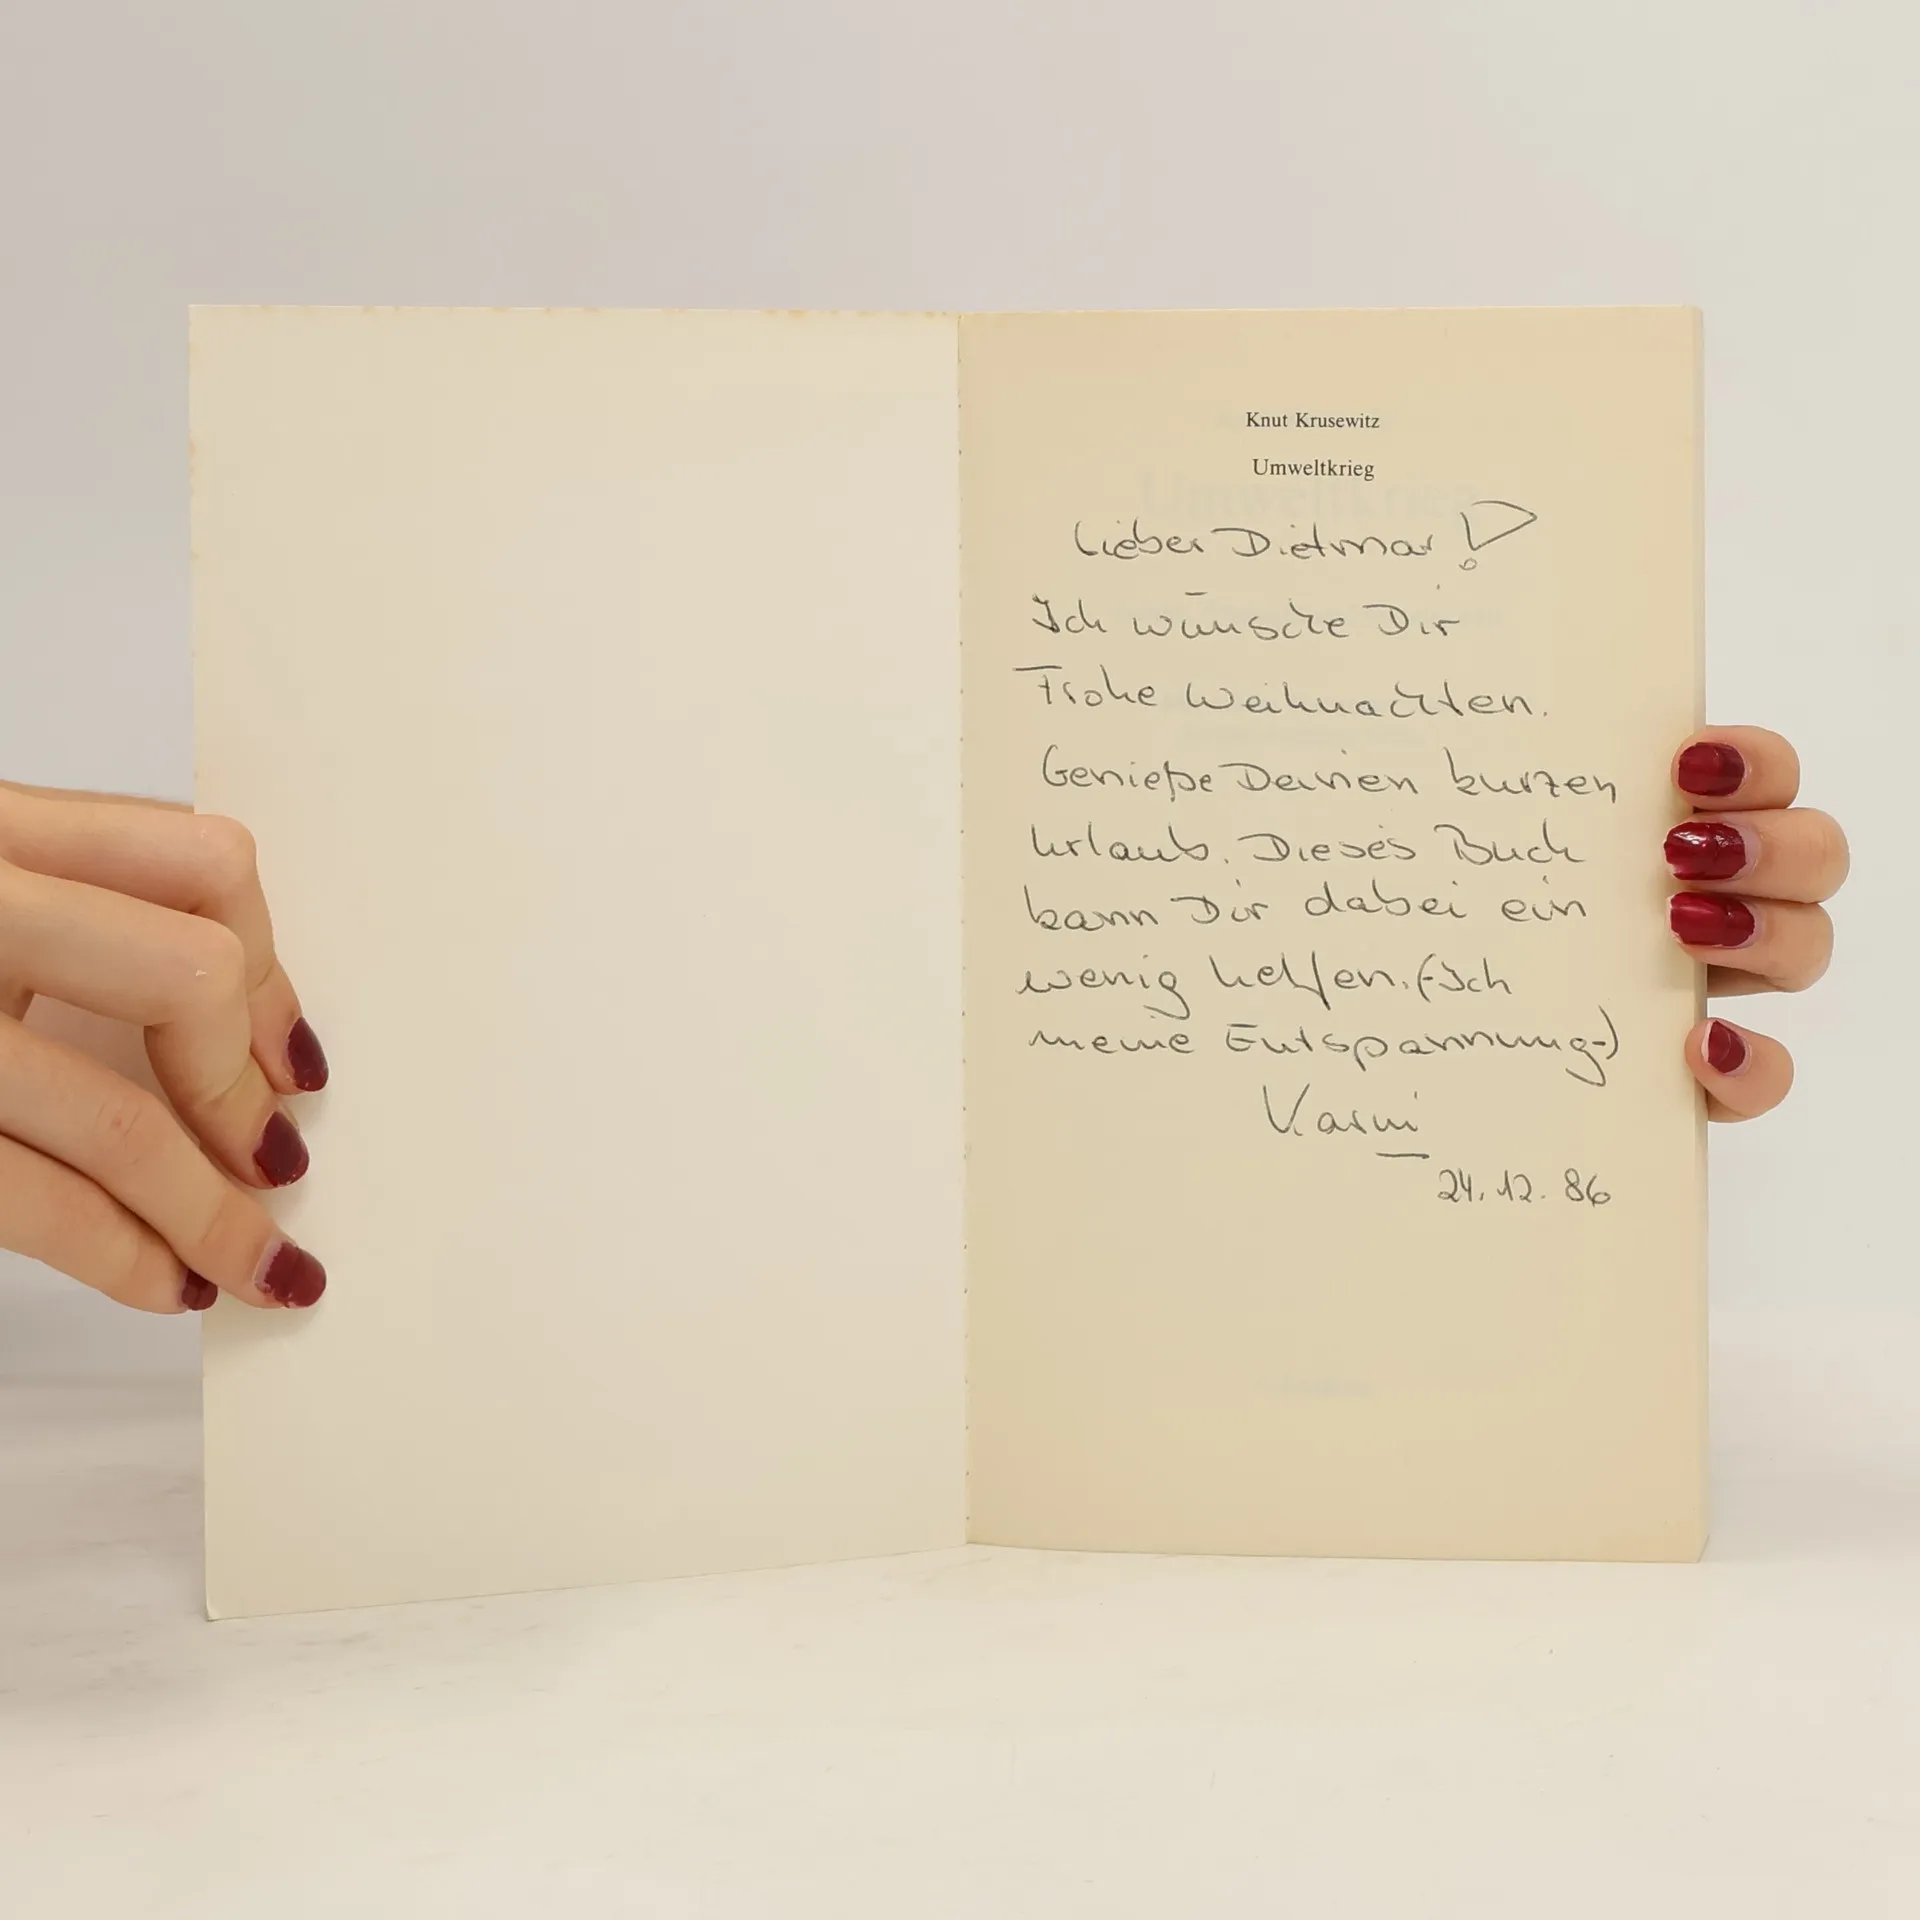 Knut Krusewitz
Umweltkrieg
Lieber Dietmar!
Ich wünsche Dir
Frohe Weihnachten.
Genieße Deinen kurzen
Urlaub. Dieses Buch
kann Dir dabei ein
wenig helfen. (-Ich
meine Entspannung-)
Karin
24.12.86